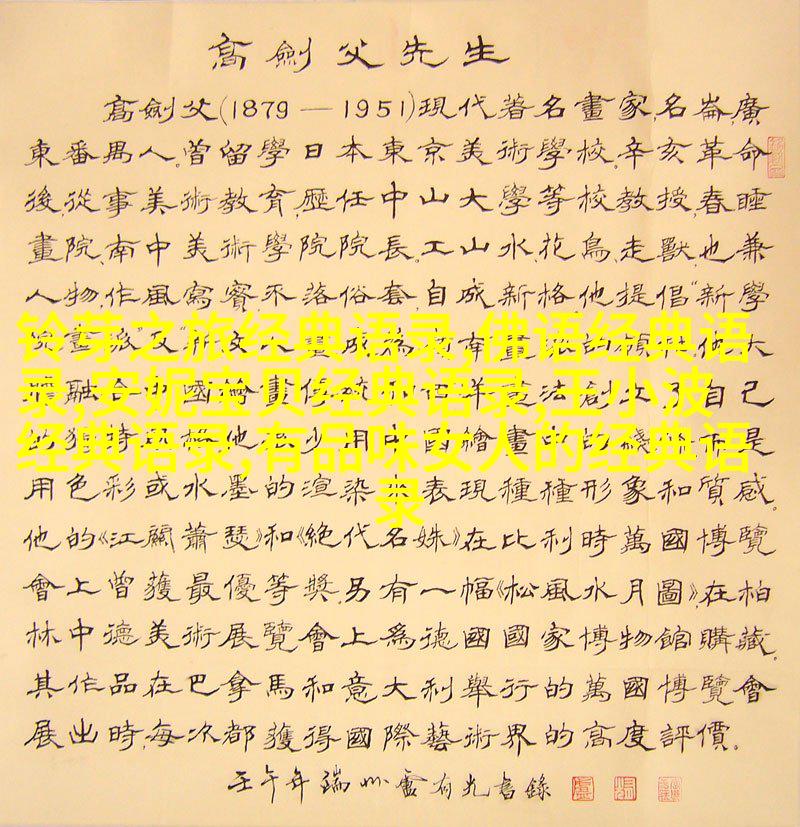 高劍父先生
高劍父(1879—1951)現代著名畫家,名崙,廣
東番禺人。曾留學日本東京美術學校,辛亥革命
後,從事美術教育,歷任中山大學等校教授,春睡
畫院、南中美術學院院長。工山水、花鳥、走獸,也兼
人物,作風寫實,不落俗套,自成新格,他提倡“新學
铃芽之旅经典语录,佛语经典语
录,安妮宝贝经典语录,王小波
经典语录,有品味女人的经典语
录
用色彩或水墨的渲染,表現種種形象和質感。
他的《江關蕭瑟》和《絕代名姝》在比利時萬國博覽
會上曾獲最優等獎。另有一幅《松風水月圖》,在柏
林中德美術展覽會上為德國國家博物館購藏。
其作品在巴拿馬和意大利舉行的萬國博覽會
展出時,每次都獲得國際藝術界的高度評價。
壬午年端州盧有光書錄